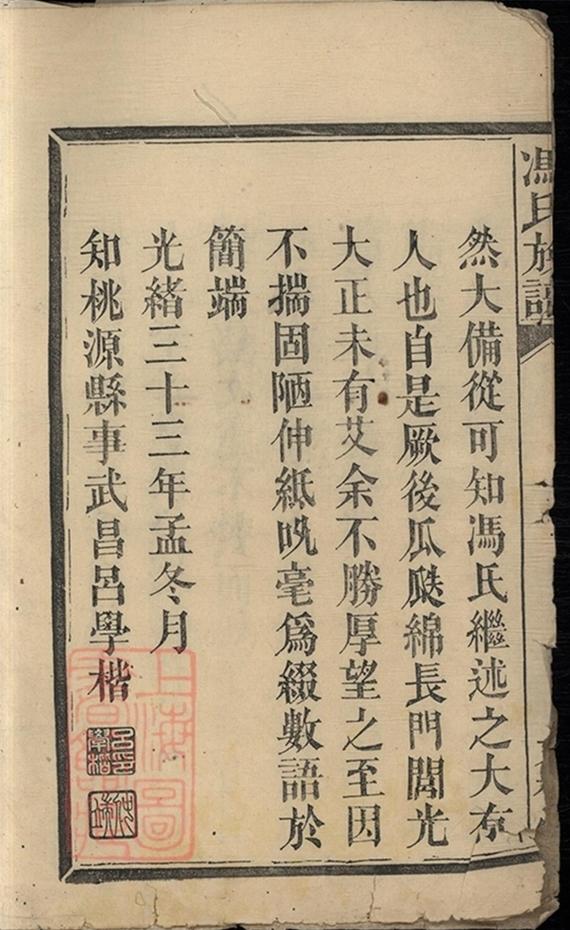 馮氏族譜
然大備從可知馮氏繼述之大有
人也自是厥後瓜瓞綿長門閭光
大正未有艾余不勝厚望之至因
不揣固陋伸紙吮毫爲綴數語於
簡端
光緒三十三年孟冬月
知桃源縣事武昌呂學楷
上海圖